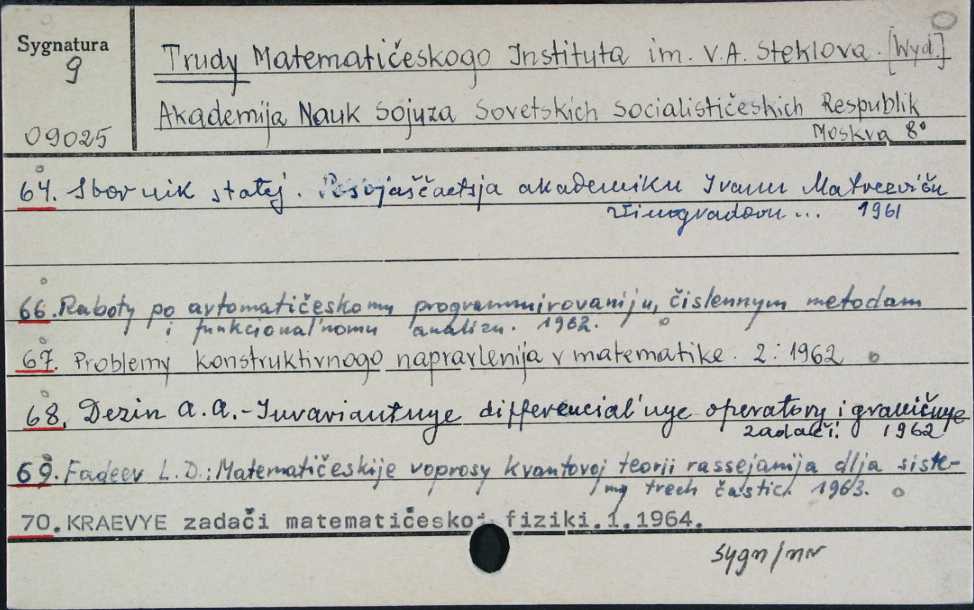 Sygnatura
9
09025
Trudy Matematičeskogo Instituta im. V.A. Steklova. [Wyd.]
Akademija Nauk Sojuza Sovetskich Socialističeskich Respublik
Moskva 8°
64. Sbornik statej. Posvjaščaetsja akademiku Ivanu Matveeviču
Vinogradovu... 1961
66. Raboty po avtomatičeskomu programmirovaniju, čislennym metodam
i funkcional'nomu analizu. 1962.
67. Problemy konstruktivnogo napravlenija v matematike. 2: 1962
68. Dezin A.A.-Invariantnye differencial'nye operatory i graničnye
zadači. 1962
69. Fadeev L.D.: Matematičeskije voprosy kvantovoj teorii rassejanija dlja siste-
my trech častic. 1963.
70. KRAEVYE zadači matematičeskoj fiziki.1.1964.
sygn/nr